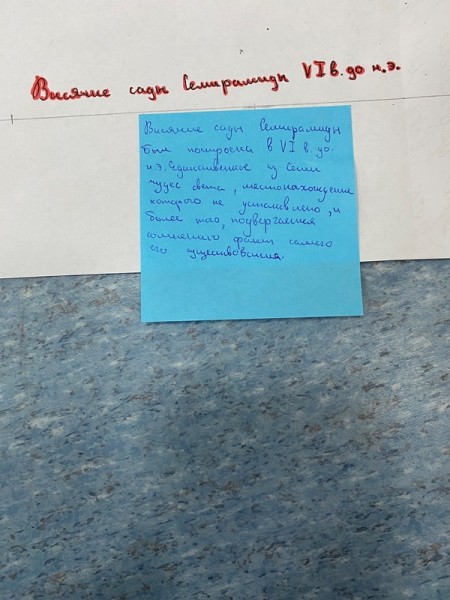 Висячие сады Семирамиды VI в. до н.э.
Висячие сады Семирамиды
был построен в VI в. до.
н.э. Единственное из семи
чудес света, местонахождение
которого не установлено, и
более того, подвергается
сомнению факт самого
его существования.